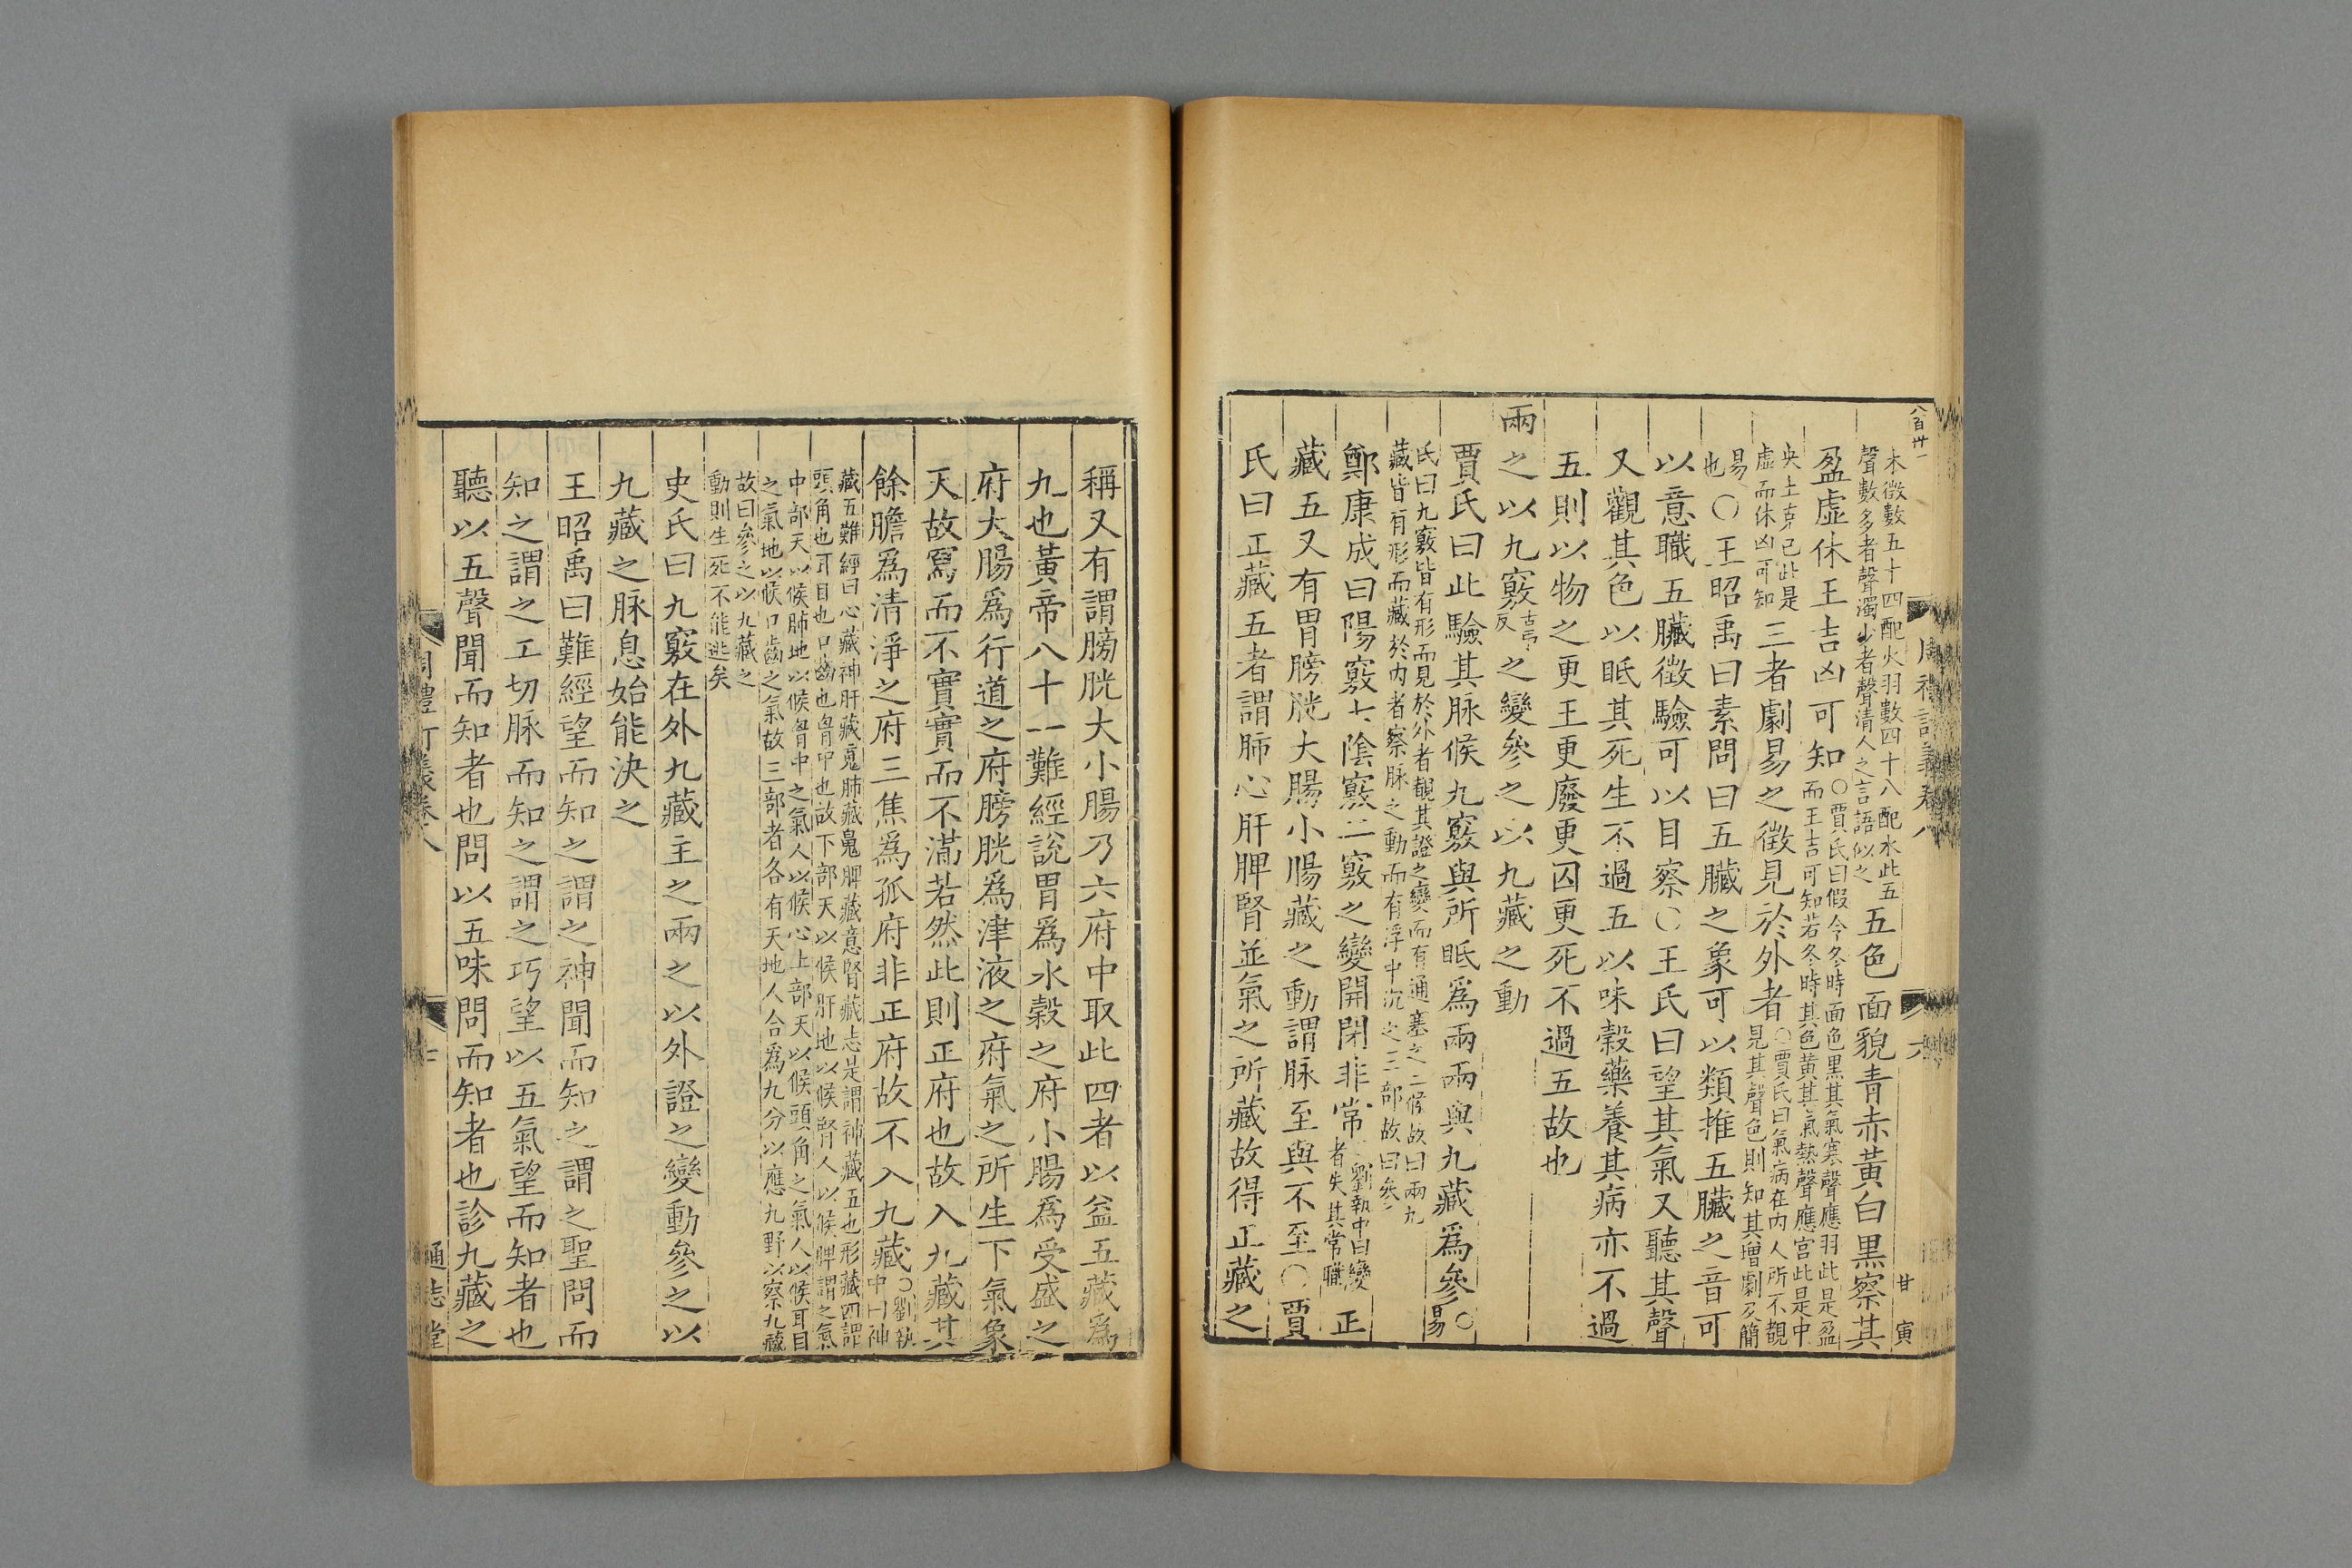 八百卅一
木徵數五十四配火羽數四十八配水此五
聲數多者聲濁少者聲清人之言語似之
五色面貌青赤黃白黑察其
盈虛休王吉凶可知
○賈氏曰假令冬時面色黑其氣寒聲應羽此是盈
而王吉可知若冬時其色黃其氣熱聲應宮此是中
央土克己此是
虛而休凶可知
三者劇易之徵見於外者
○賈氏曰氣病在內人所不覩
見其聲色則知其增劇及簡
易
也
○王昭禹曰素問曰五臟之象可以類推五臟之音可
以意職五臟徵驗可以目察○王氏曰望其氣又聽其聲
又觀其色以眡其死生不過五以味穀藥養其病亦不過
五則以物之更王更廢更囚更死不過五故也
兩之以九竅
苦弔
反
之變參之以九藏之動
賈氏曰此驗其脉候九竅與所眡爲兩兩與九藏爲參○
易
氏曰九竅皆有形而見於外者覩其證之變而有通塞之二候故曰兩九
藏皆有形而藏於內者察脉之動而有浮中沉之三部故曰參
鄭康成曰陽竅七陰竅二竅之變開閉非常
劉執中曰變
者失其常職
正
藏五又有胃膀胱大腸小腸藏之動謂脉至與不至○賈
氏曰正藏五者謂肺心肝脾腎並氣之所藏故得正藏之
稱又有謂膀胱大小腸乃六府中取此四者以益五藏爲
九也黃帝八十一難經說胃爲水穀之府小腸爲受盛之
府大腸爲行道之府膀胱爲津液之府氣之所生下氣象
天故寫而不實實而不滿若然此則正府也故入九藏其
餘膽爲清淨之府三焦爲孤府非正府故不入九藏
○劉執
中曰神
藏五難經曰心藏神肝藏䰟肺藏䰟脾藏意腎藏志是謂神藏五也形藏四謂
頭角也耳目也口齒也胷中也故下部天以候肝地以候腎人以候脾謂之氣
中部天以候肺地以候胷中之氣人以候心上部天以候頭角之氣人以候耳目
之氣地以候口齒之氣故三部者各有天地人合爲九分以應九野以察九藏
故曰參之以九藏之
動則生死不能逃矣
史氏曰九竅在外九藏主之兩之以外證之變動參之以
九藏之脉息始能決之
王昭禹曰難經望而知之謂之神聞而知之謂之聖問而
知之謂之工切脉而知之謂之巧望以五氣望而知者也
聽以五聲聞而知者也問以五味問而知者也診九藏之
通志堂